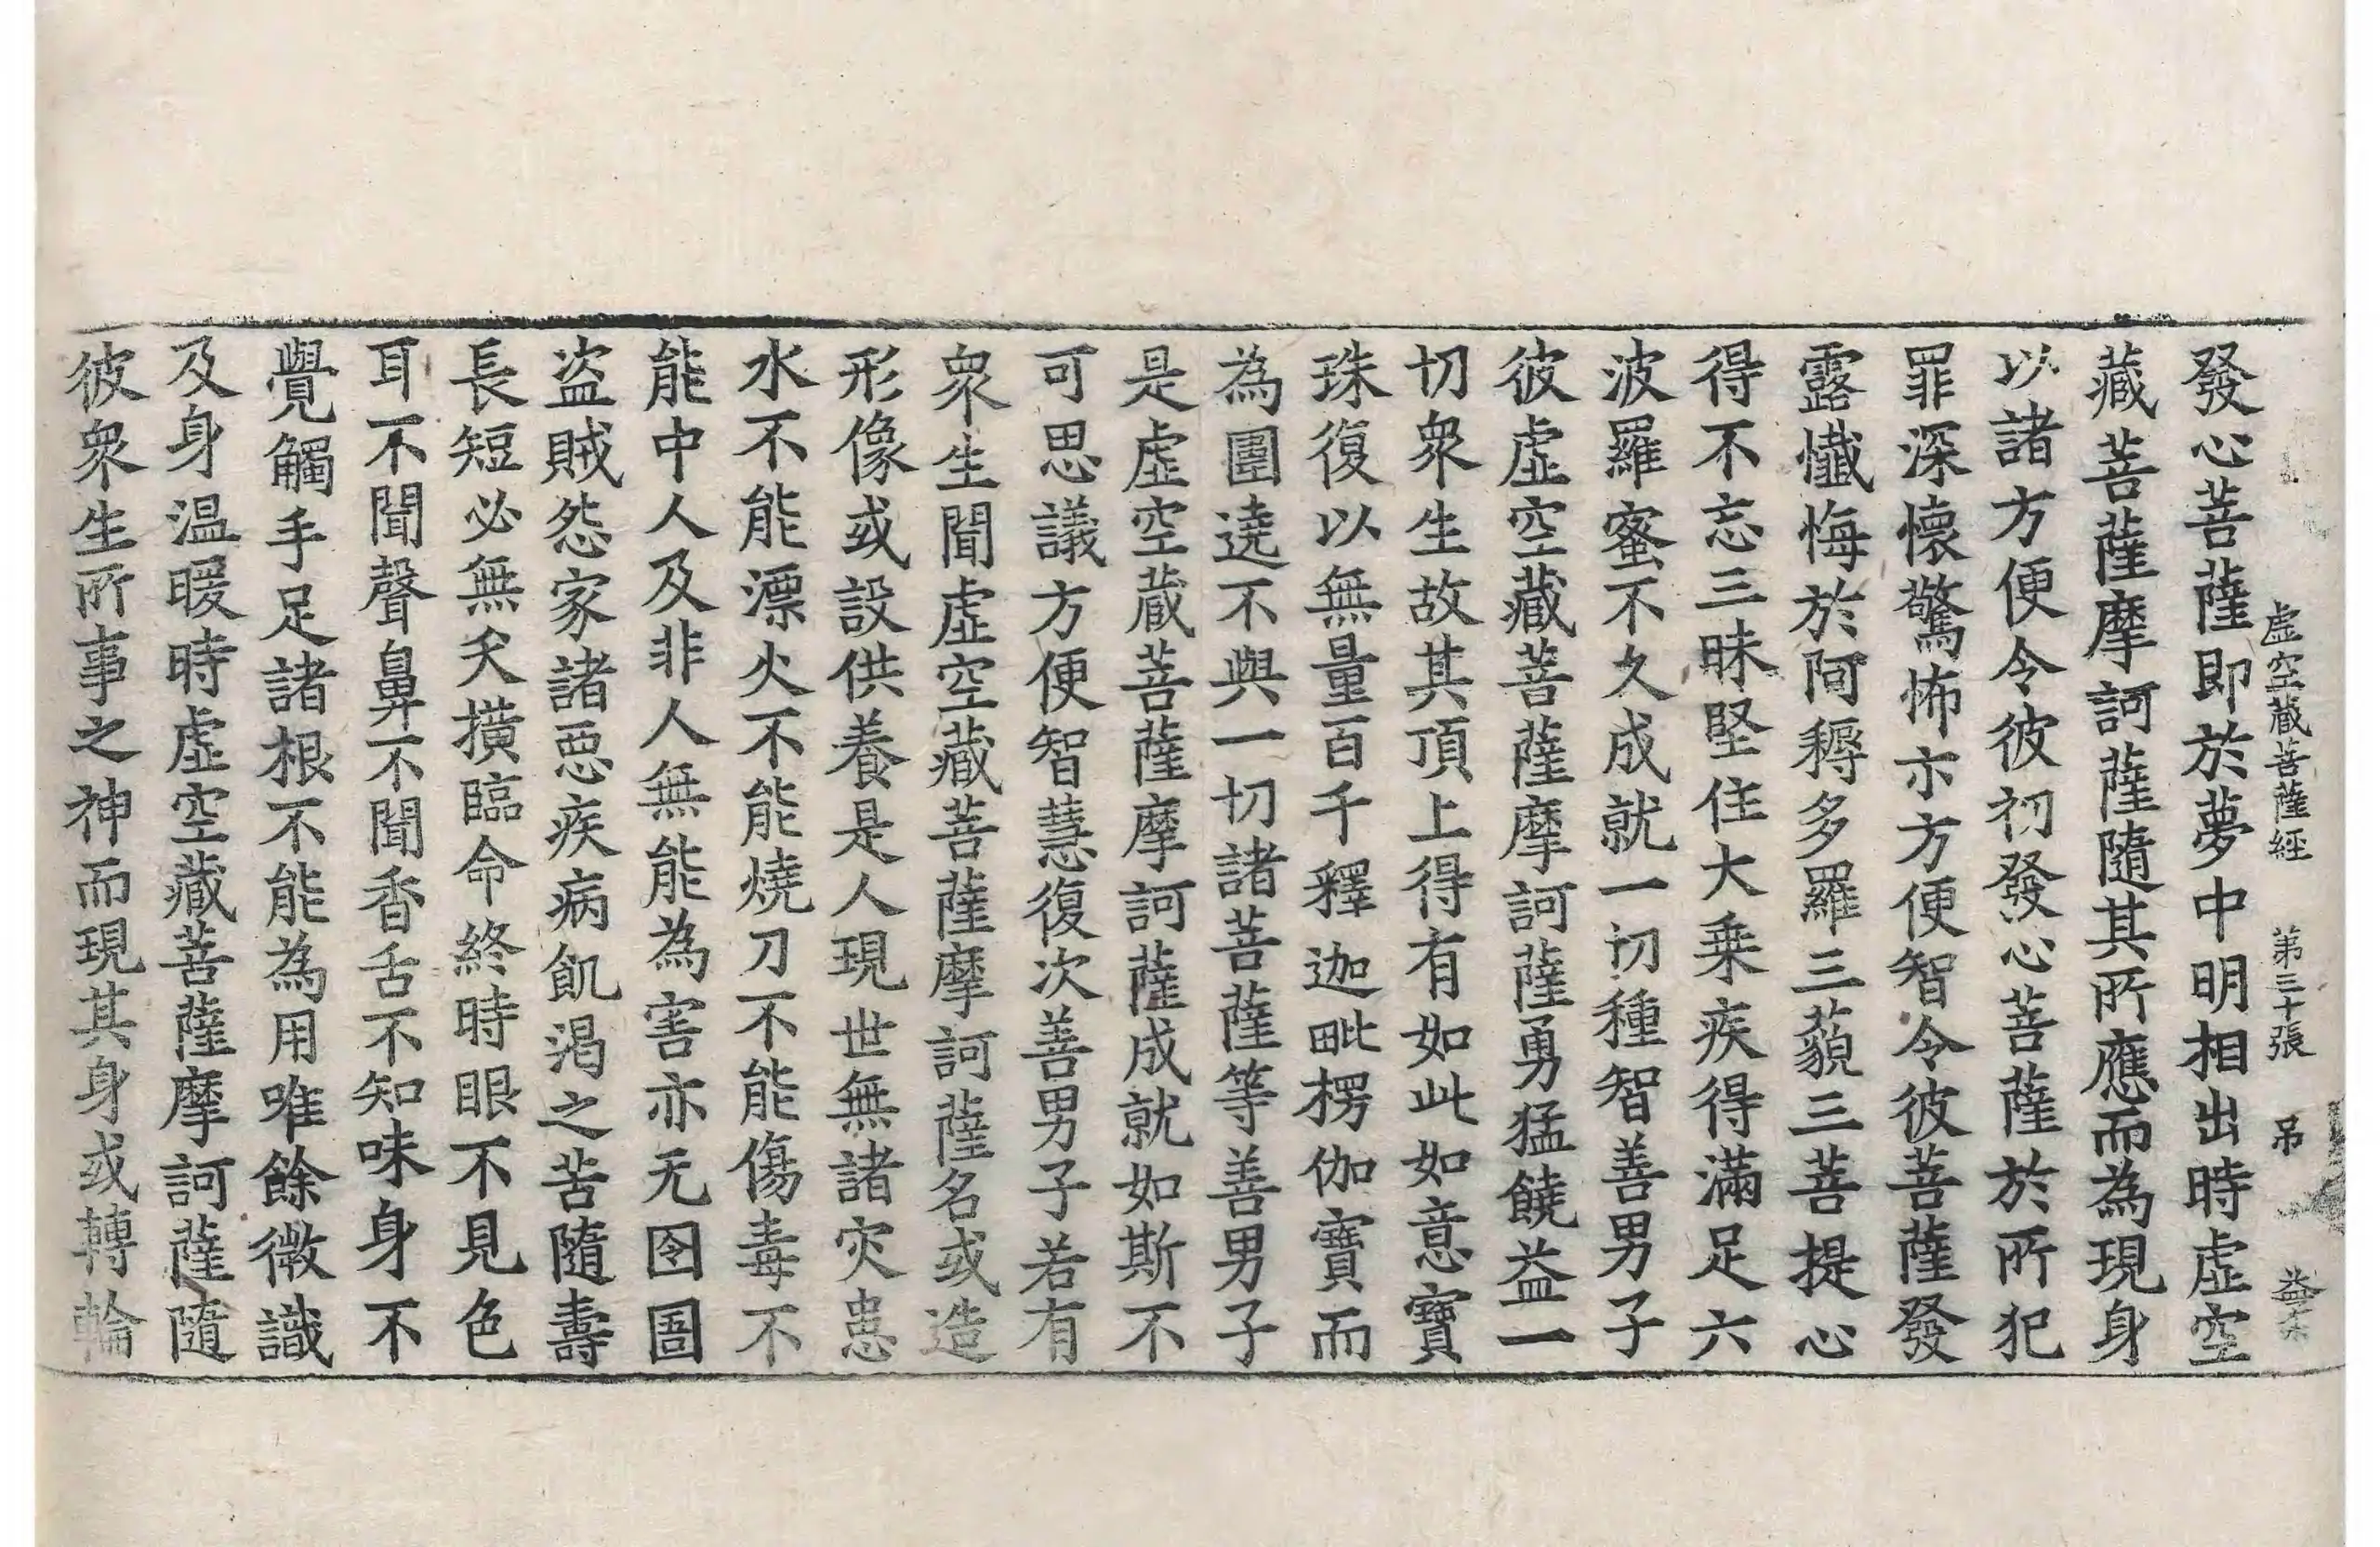 虛空藏菩薩經　第三十張　吊
發心菩薩即於夢中明相出時虛空
藏菩薩摩訶薩隨其所應而為現身
以諸方便令彼初發心菩薩於所犯
罪深懷驚怖亦方便智令彼菩薩發
露懺悔於阿耨多羅三藐三菩提心
得不忘三昧堅住大乗疾得滿足六
波羅蜜不久成就一切種智善男子
彼虛空藏菩薩摩訶薩勇猛饒益一
切衆生故其頂上得有如此如意寶
珠復以無量百千釋迦毗楞伽寶而
為圍遶不與一切諸菩薩等善男子
是虛空藏菩薩摩訶薩成就如斯不
可思議方便智慧復次善男子若有
衆生聞虛空藏菩薩摩訶薩名或造
形像或設供養是人現世無諸灾患
水不能漂火不能燒刀不能傷毒不
能中人及非人無能為害亦无囹圄
盜賊怨家諸惡疾病飢渴之苦隨壽
長短必無夭橫臨命終時眼不見色
耳不聞聲鼻不聞香舌不知味身不
覺觸手足諸根不能為用唯餘微識
及身温暖時虛空藏菩薩摩訶薩隨
彼衆生所事之神而現其身或轉輪